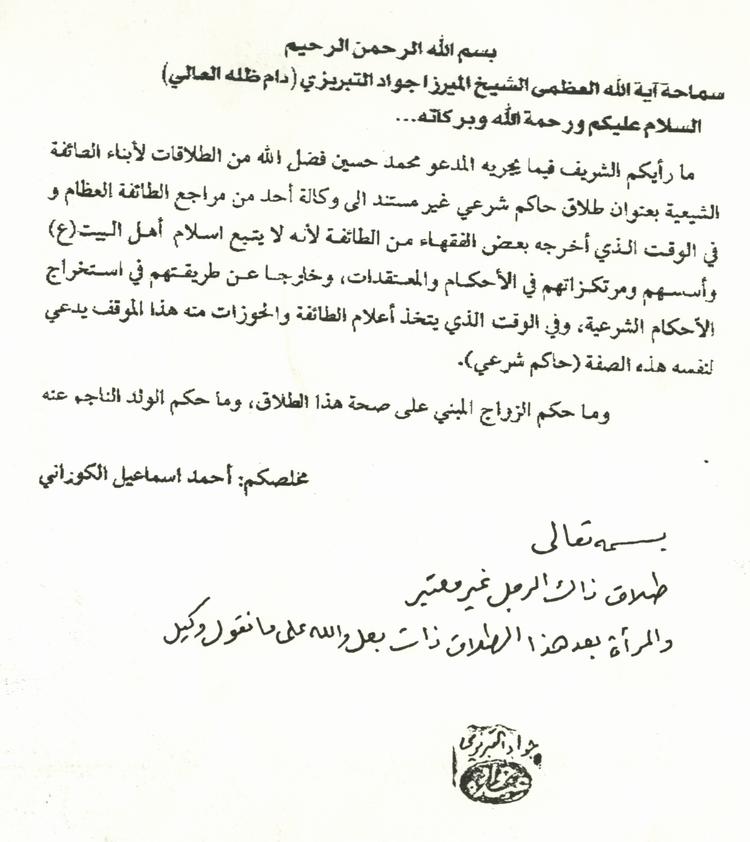 بسم الله الرحمن الرحيم
سماحة آية الله العظمى الشيخ الميرزا جواد التبريزي (دام ظله العالي)
السلام عليكم ورحمة الله وبركاته...
ما رأيكم الشريف فيما يجريه المدعو محمد حسين فضل الله من الطلاقات لأبناء الطائفة
الشيعية بعنوان طلاق حاكم شرعي غير مستند الى وكالة أحد من مراجع الطائفة العظام و
في الوقت الذي أخرجه بعض الفقهاء من الطائفة لأنه لا يتبع اسلام أهل البيت(ع)
وأسسهم ومرتكزاتهم في الأحكام والمعتقدات، وخارجا عن طريقتهم في استخراج
الأحكام الشرعية، وفي الوقت الذي يتخذ أعلام الطائفة والحوزات منه هذا الموقف يدعي
لنفسه هذه الصفة (حاكم شرعي).
وما حكم الزواج المبني على صحة هذا الطلاق، وما حكم الولد الناجم عنه
.
مخلصكم: أحمد اسماعيل الكوزاني
بسمه تعالى
طلاق ذاك الرجل غير معتبر
والمرأة بعد هذا الطلاق ذات بعل والله على ما نقول وكيل
جواد التبريزي